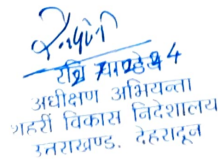 रवि पाण्डेय
अधीक्षण अभियन्ता
शहरी विकास निदेशालय
उत्तराखण्ड, देहरादून